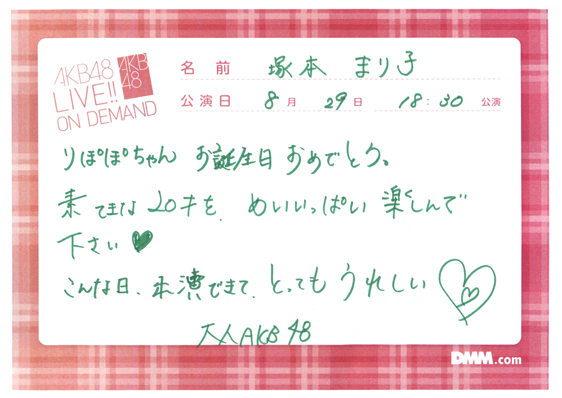 AKB48
LIVE!!
ON DEMAND
AKB
48
名前 塚本 まり子
公演日 8月 29日 18:30 公演
りぽぽちゃん お誕生日 おめでとう。
素てきな 20才を、めいいっぱい 楽しんで
下さい
こんな日、出演できて、とっても うれしい
大人AKB48
DMM.com